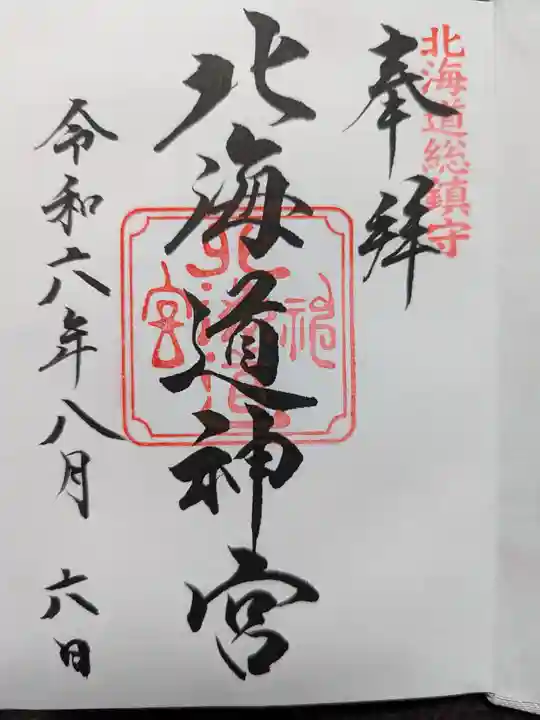 北海道総鎮守
奉拝
北海道神宮
令和六年八月 六日